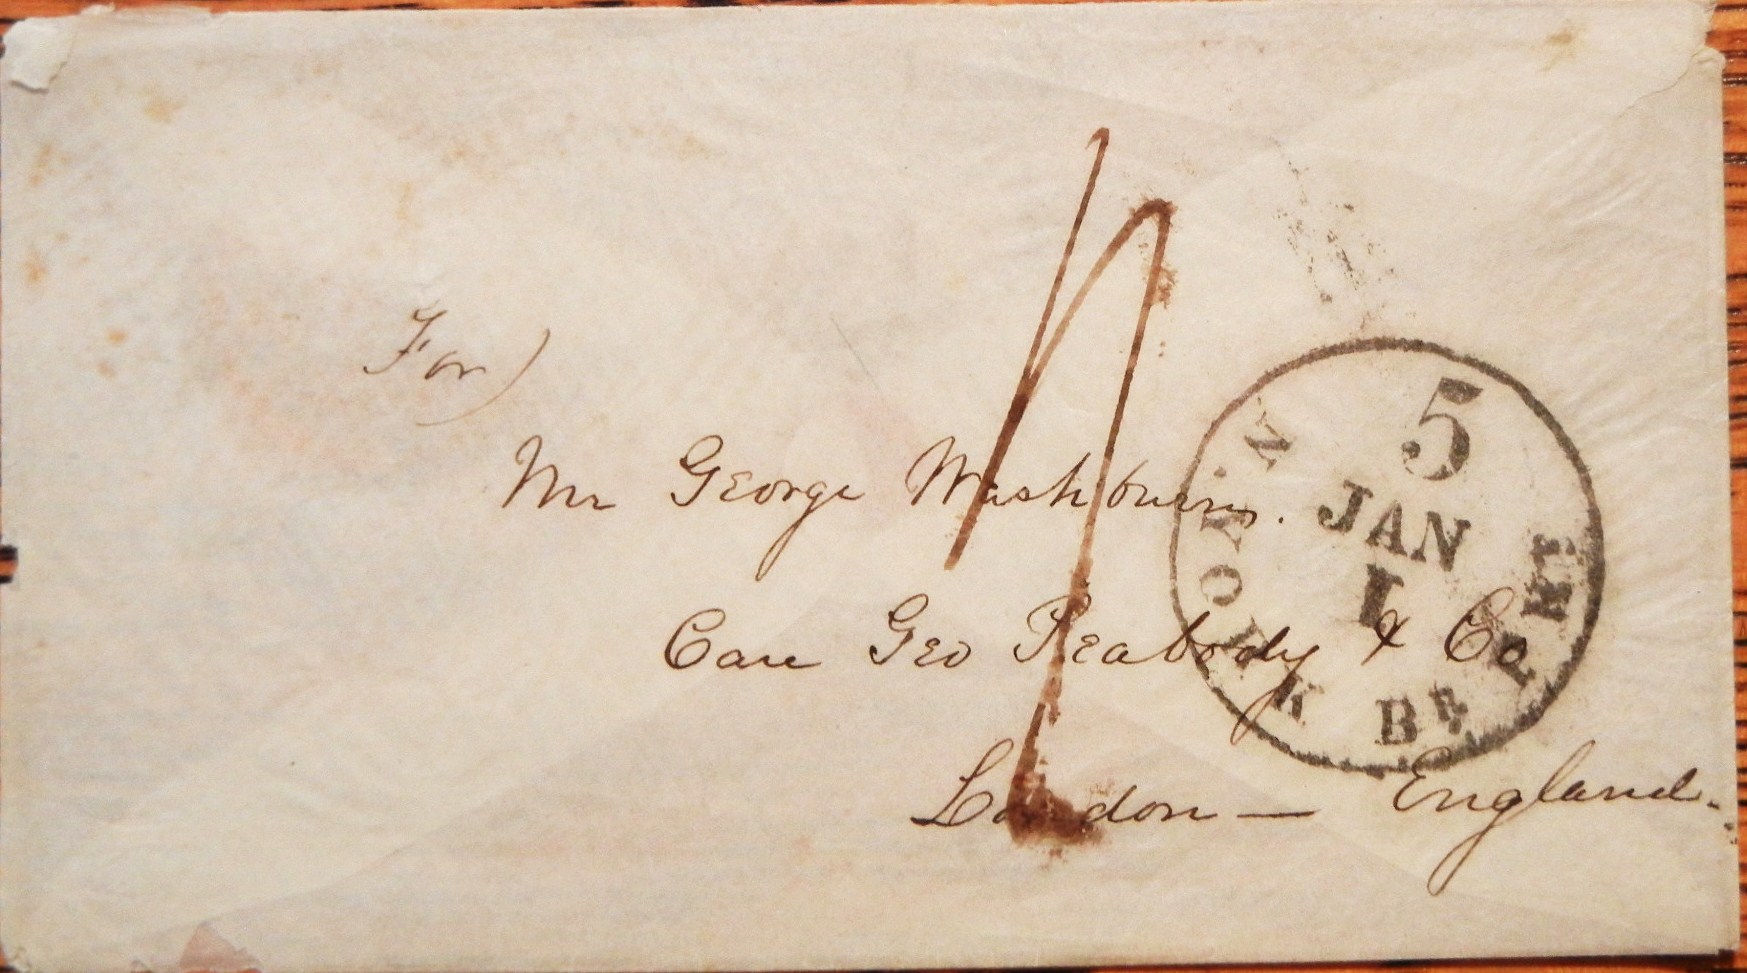 For)
Mr George Washburn.
Care Geo Peabody & Co
London — England.
5
JAN
1
N. YORK BR. PKT